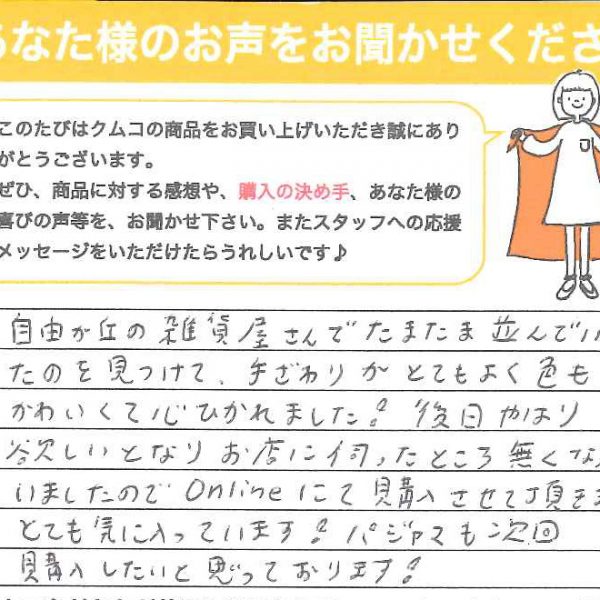 あなた様のお声をお聞かせくださ
このたびはクムコの商品をお買い上げいただき誠にあり
がとうございます。
ぜひ、商品に対する感想や、購入の決め手、あなた様の
喜びの声等を、お聞かせ下さい。またスタッフへの応援
メッセージをいただけたらうれしいです♪
自由が丘の雑貨屋さんでたまたま並んでい
たのを見つけて、手ざわりがとてもよく色も
かわいくて心ひかれました！後日やはり
欲しいとなりお店に伺ったところ無くなって
いましたのでOnlineにて購入させて頂きま
とても気に入っています！パジャマも次回
購入したいと思っております！